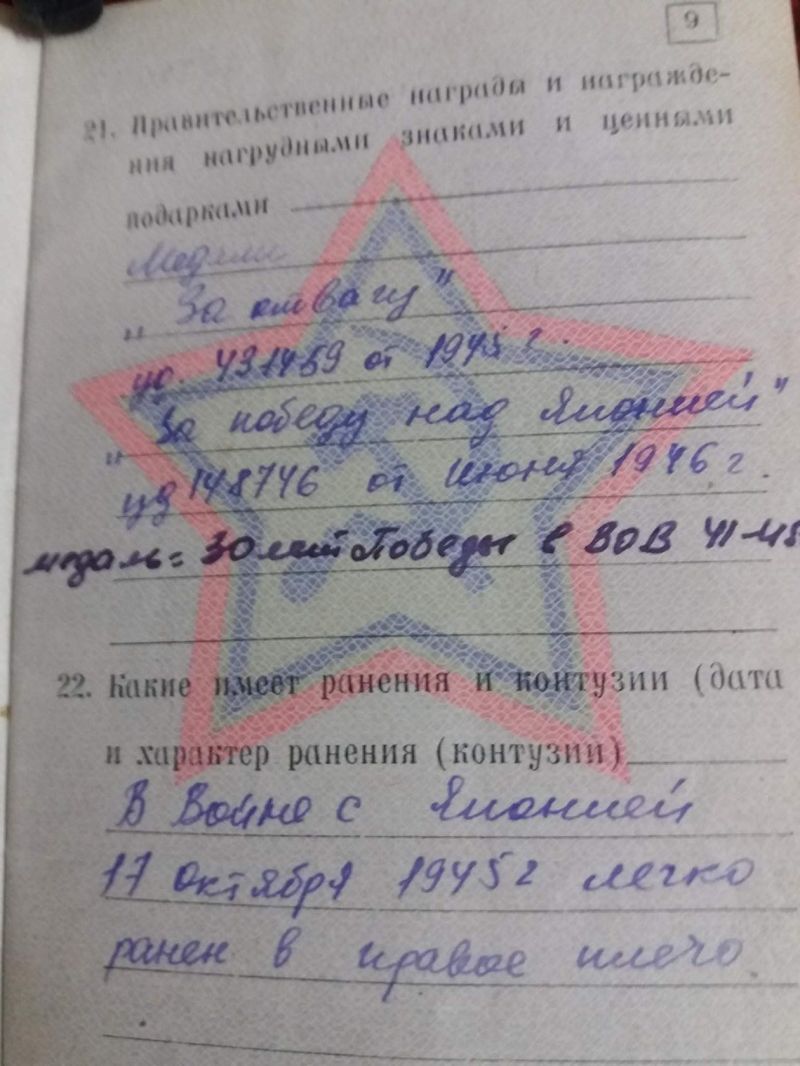 9
21. Правительственные награды и награжде-
ния нагрудными знаками и ценными
подарками
Медали
„ За отвагу"
уд. 431459 от 1945 г.
„ За победу над Японией"
уд 148746 от Июня 1946 г.
медаль = 30 лет Победы в ВОВ 41-45
22. Какие имеет ранения и контузии (дата
и характер ранения (контузии)
В Войне с Японией
17 октября 1945 г легко
ранен в правое плечо